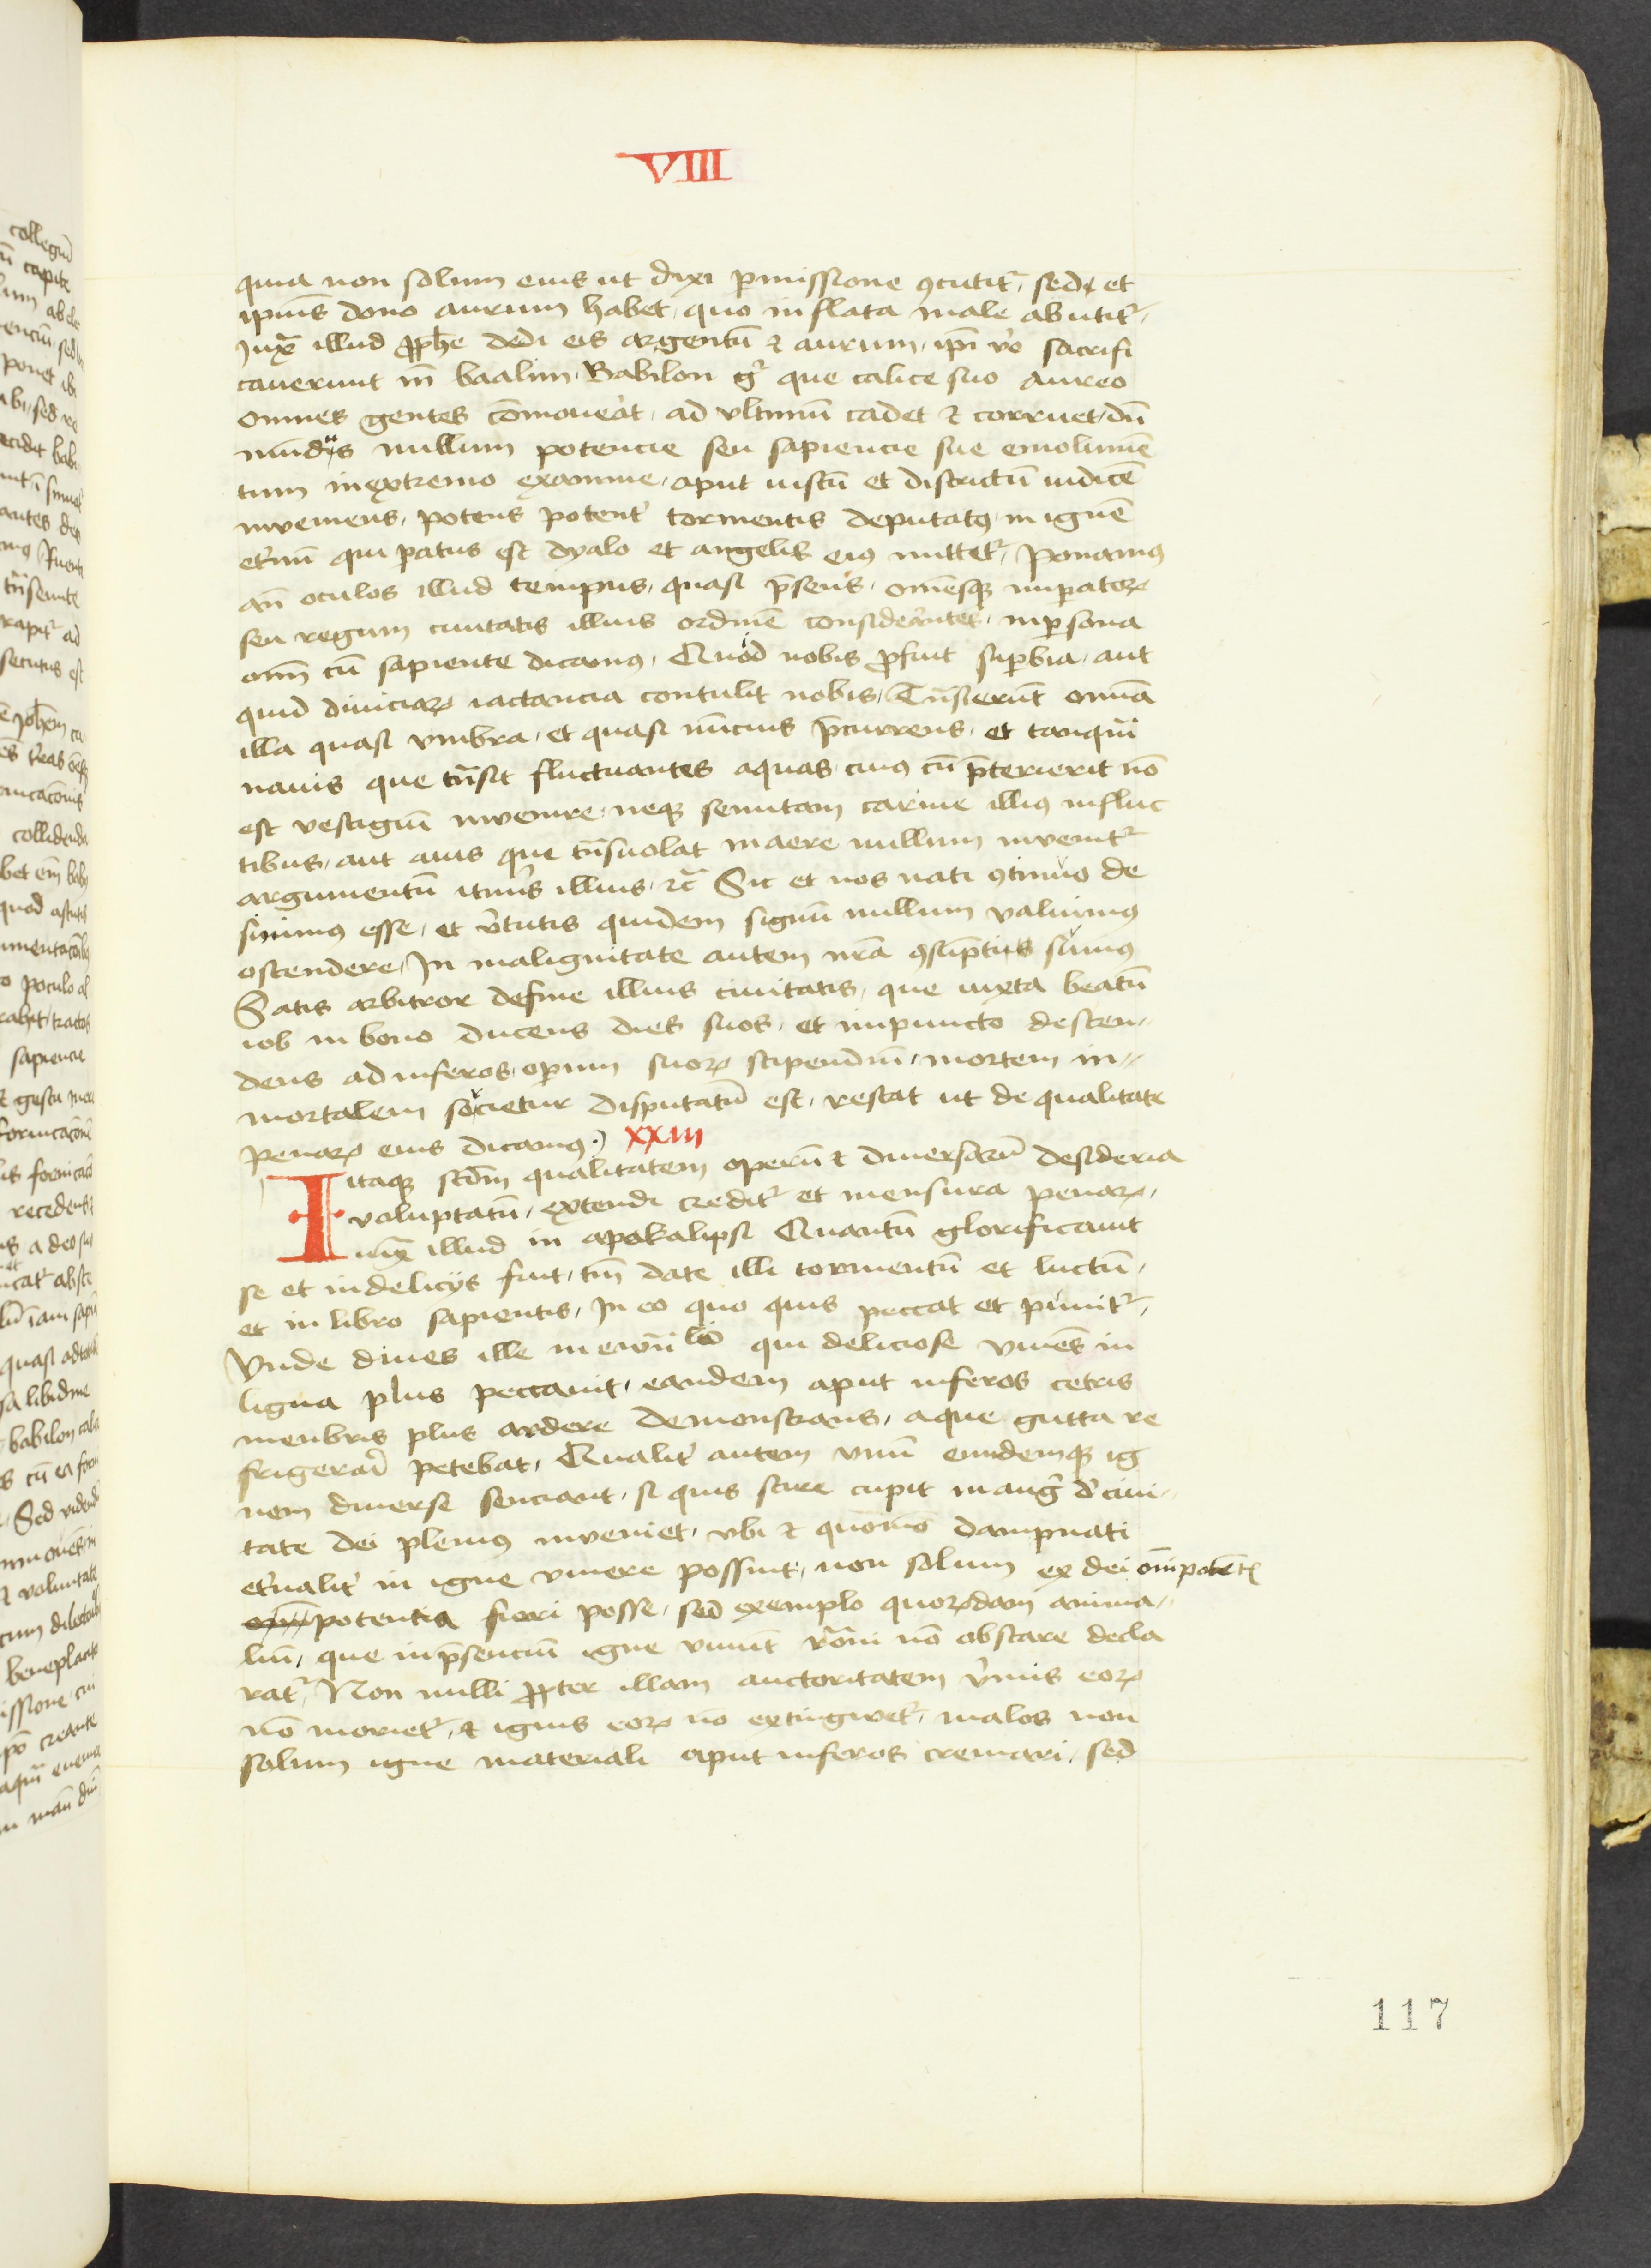 VIII
quia non solum eius ut dixi pmissione ꝯcutit᷑, sed et
ipius dono aurum habet, quo inflata male abutit᷑,
Juxͣ illud ꝓph̄e dedi eis argentū ⁊ aurum, ip̄i v̓o sacrifi
cauerunt in̄ baalim, Babilon g᷑ que calice suo aureo
omnes gentes cōmouerat, ad vltimū cadet ⁊ corruet, dū
nullum potencie seu sapiencie sue emolumē
tum inextremo examine, aput iustū et districtū iudicē
inveniens, potens potent̓ tormentis deputatꝰ, in ignē
et̓nū qui patus est dyalo et angelis eiꝰ mittet᷑, Ponamꝰ
an̄ oculos illud tempus, quasi p̄sens, omēsqꝫ impatoꝝ
seu regum ciuitatis illius ordinē considerantes, inpsona
om̄ cū sapiente dicamꝰ, Quid nobis ꝓfuit supbia, aut
quid diuiciaꝝ iactancia contulit nobis, Tn̄sierūt omīa
illa quasi vmbra, et quasi nūcius p̄currens, et tanquā
nauis que tn̄sit fluctuantes aquas, cuiꝰ cū p̄terierit nō
est vestigiū invenire, neqꝫ semitam carine illiꝰ influc
tibus, aut auis que tn̄suolat inaere nullum invenit᷑
argumentū itin̓is illius, ⁊c̄ Sic et nos nati ꝯtinuo de
sinimꝰ esse, et v̓tutis quidem signū nullum valuimꝰ
ostendere, In malignitate autem nr̄a ꝯsūpti sumꝰ
Satis arbitror define illius ciuitatis, que iuxta beatū
iob in bono ducens dies suos, et inpuncto descen-
dens ad inferos, opum suoꝝ stipendiū, mortem in-
mortalem sortietur disputatū est, restat ut de qualitate
penaꝝ eius dicamꝰ XXIII
Iitaqꝫ scd̄m qualitatem operū ⁊ diuersarū desideria
voluptatū, extendi credit᷑ et mensura penaꝝ,
iuxͣ illud in apokalipsi Quantū glorificauit
se et indelicijs fuit, tm̄ date illi tormentū et luctū,
et in libro sapientis, In eo quo quis peccat et punit᷑,
Vnde diues ille in ewn̄lio qui deliciose viuēs in
ligna plus peccauit, eandem aput inferos cetris
menbris plus ardere demonstrans, aque gutta re
frigerari petebat, Qualit̓ autem vnū eundemqꝫ ig
nem diuerse senciant, si quis scire cupit in aug᷑ d̓ ciui-
tate dei plenius inveniet, vbi ⁊ quomō dampnati
et̓nalit̓ in igne viuere possint, non solum ex dei om̄ipotēt
potentia fieri posse, sed exemplo quoꝝdam anima-
liū, que inp̄senciū igne viuūt rōni nō obstare decla
rat᷑, Non nulli ꝓpter illam auctoritatem v̓mis eoꝝ
nō moriet᷑, ⁊ ignis eoꝝ nō extingwet᷑, malos non
solum igne materiali aput inferos cremari, sed
117